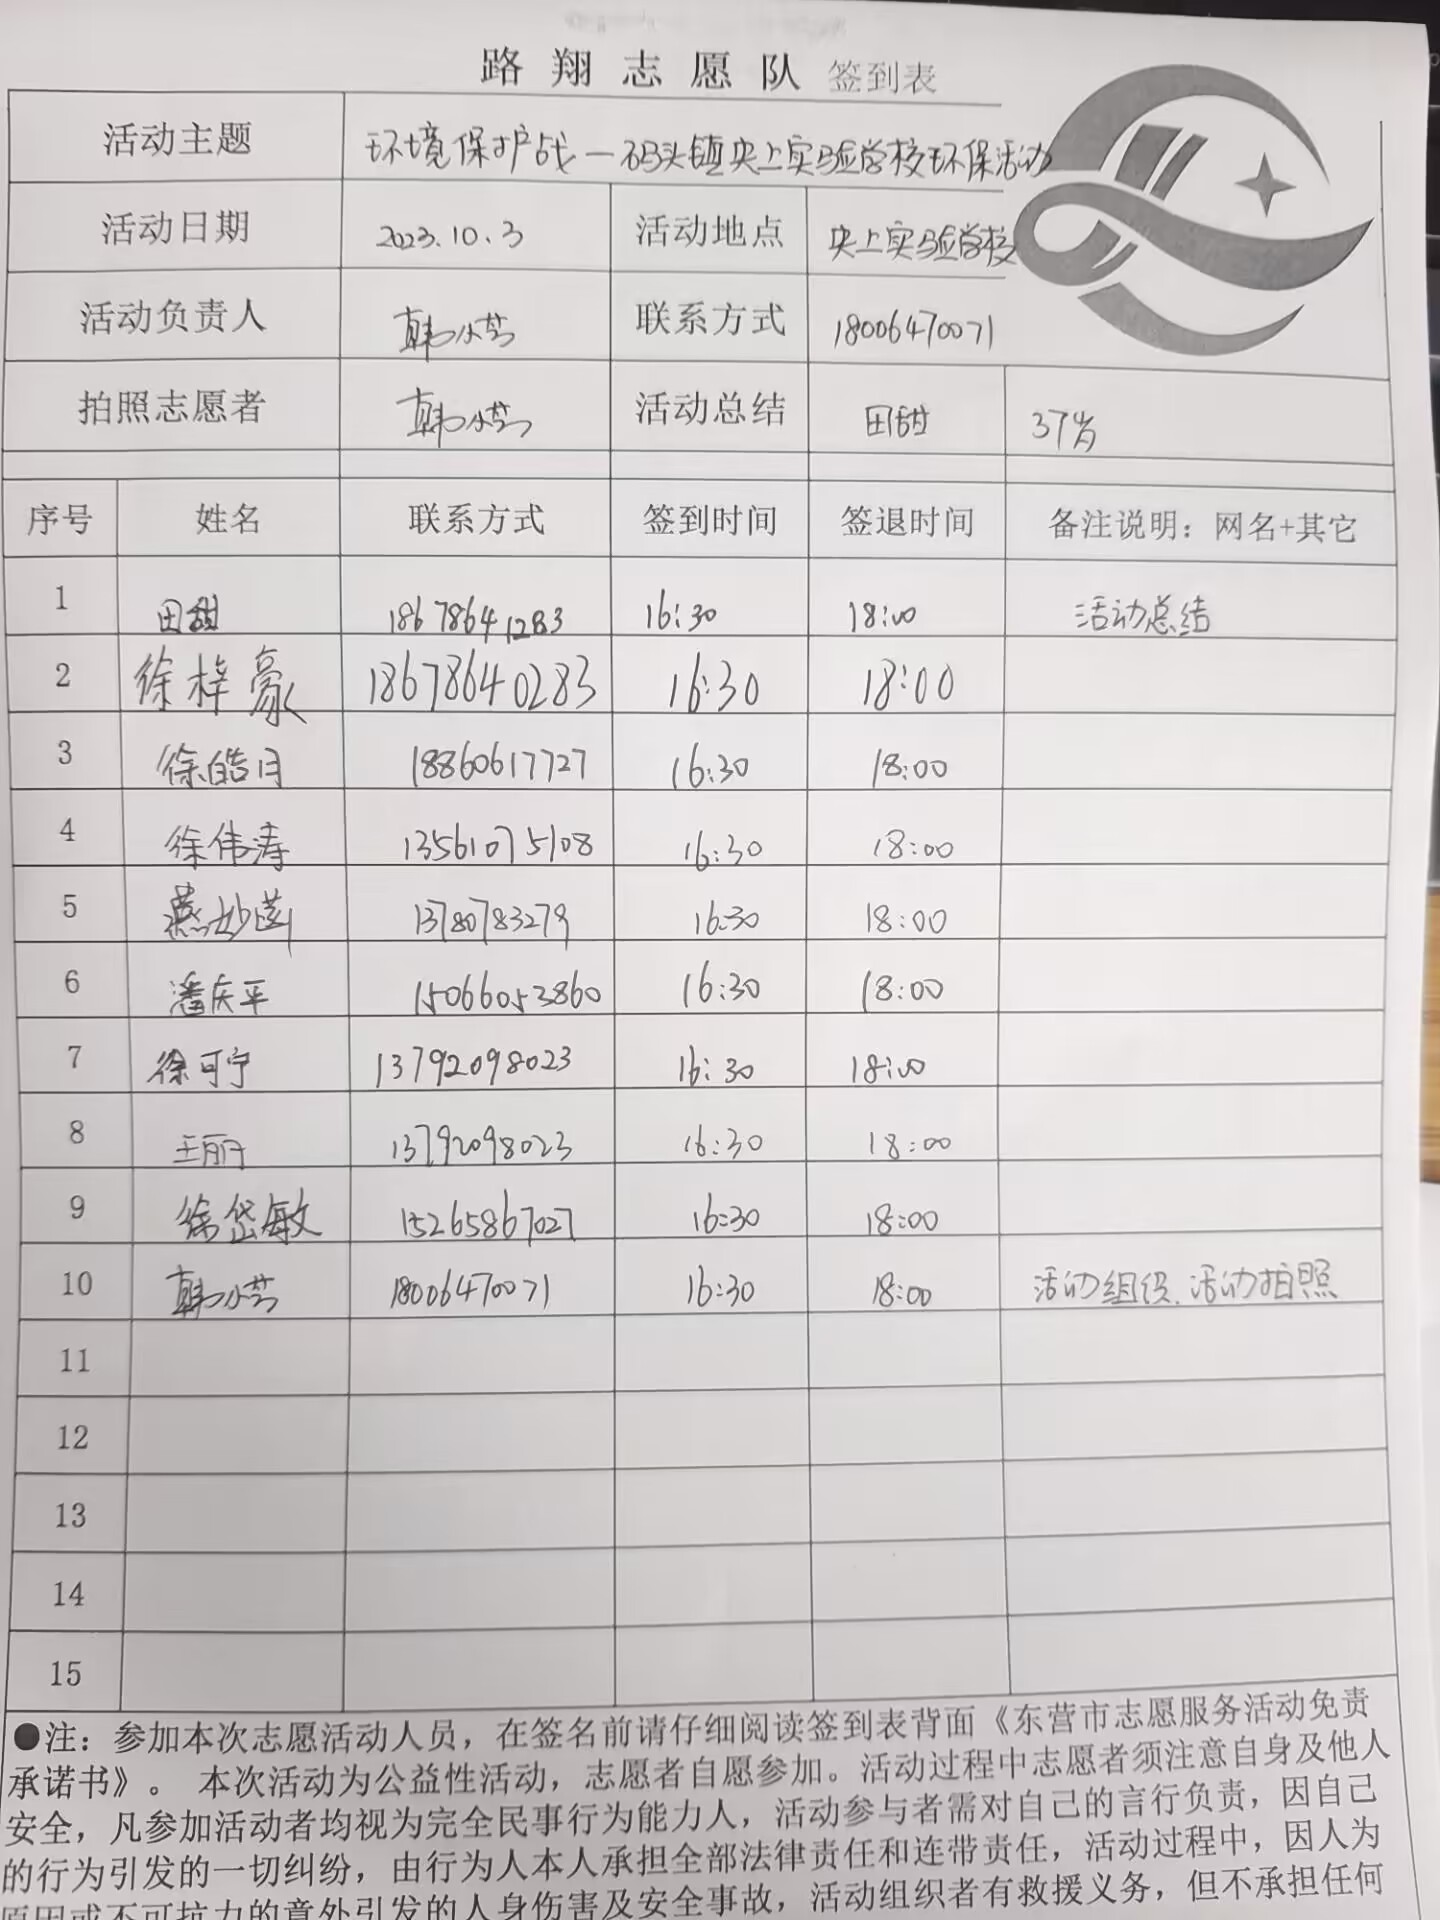 路翔志愿队 签到表
活动主题 环境保护战—码头镇央上实验学校环保活动
活动日期 2023.10.3 活动地点 央上实验学校
活动负责人 韩小芳 联系方式 18006470071
拍照志愿者 韩小芳 活动总结 田甜 37岁
序号 姓名 联系方式 签到时间 签退时间 备注说明：网名+其它
1 田甜 18678641283 16:30 18:00 活动总结
2 徐梓豪 18678640283 16:30 18:00
3 徐皓月 18860617727 16:30 18:00
4 徐伟涛 13561075108 16:30 18:00
5 燕妙菡 13780783279 16:30 18:00
6 潘庆平 15066053860 16:30 18:00
7 徐可宁 13792098023 16:30 18:00
8 王丽 13792098023 16:30 18:00
9 徐岱敏 15265867027 16:30 18:00
10 韩小芳 18006470071 16:30 18:00 活动组织、活动拍照
11
12
13
14
15
●注：参加本次志愿活动人员，在签名前请仔细阅读签到表背面《东营市志愿服务活动免责
承诺书》。 本次活动为公益性活动，志愿者自愿参加。活动过程中志愿者须注意自身及他人
安全，凡参加活动者均视为完全民事行为能力人，活动参与者需对自己的言行负责，因自己
的行为引发的一切纠纷，由行为人本人承担全部法律责任和连带责任，活动过程中，因人为
原因或不可抗力的意外引发的人身伤害及安全事故，活动组织者有救援义务，但不承担任何